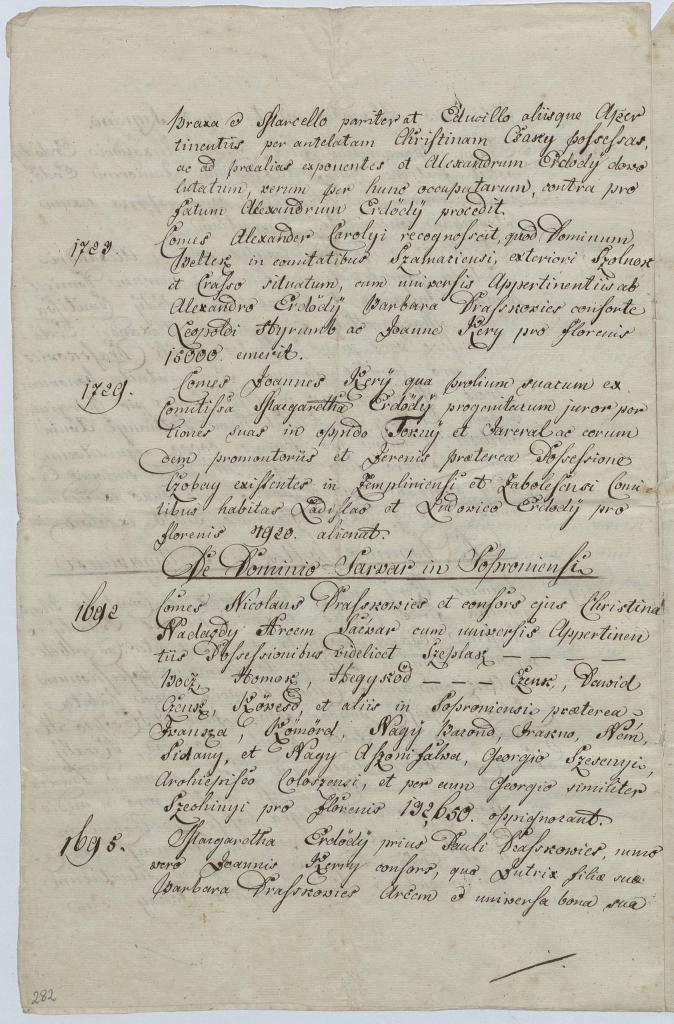 Praxa et Marcello pariter at Educillo aliisque Aper
tinentiis per antelatam Christinam Csaky possessas,
ac ad praealias exponentes et Alexandrum Erdödÿ devo
lutatum, verum per hunc occupatarum, contra pro
fatum Alexandrium Erdödÿ procedit.
1723. Comes Alexander Carolyi recognoscit, quod Dominum
in comitatibus exteriori Szolnok
et Crasso situatum, cum universis Appertinentiis ab
Alexandro Erdödÿ Barbara Draskovics consorte
Leopoldi ac Joanne Kery pro florenis
15000. emerit.
1729. Comes Joannes Kerÿ qua prolium suarum ex
Comitissa Margaretha Erdödÿ progenitarum juror por
tiones suas in oppido et ac eorun
dem promontoriis et praeterea Possessione
Czobay existentes in Zempliniensi et Zabolcsensi Comi
tibus habitas Ladislao et Ludovico Erdödÿ pro
florenis 4920. alienat.
De Dominio Sarvár in Soproniensi
1692 Comes Nicolaus Draskovics et consors ejus Christina
Nadasdy Arcem Sarvar cum universis Appertinen
tiis Possessionibus videlicet Szeplak — — — —
Bocz Homok, Hegykőd — — — Czenk, David
Czenk, Kövesd, et aliis in Soproniensi praeterea
Nagÿ Barond, Nem,
Sidany, et Nagy Aszonifalva, Georgio Szesenyi,
Archiepisco Coloszensi, et per eum Georgio similiter
Szechinyi pro florenis 192,650. oppignorant.
1695. Margaretha Erdödÿ prius Pauli Draskovics, nunc
vero Joannis Kerry consors, qua Tutrix filiae suae
Barbara Draskovics Arcem et universa bona sua
282